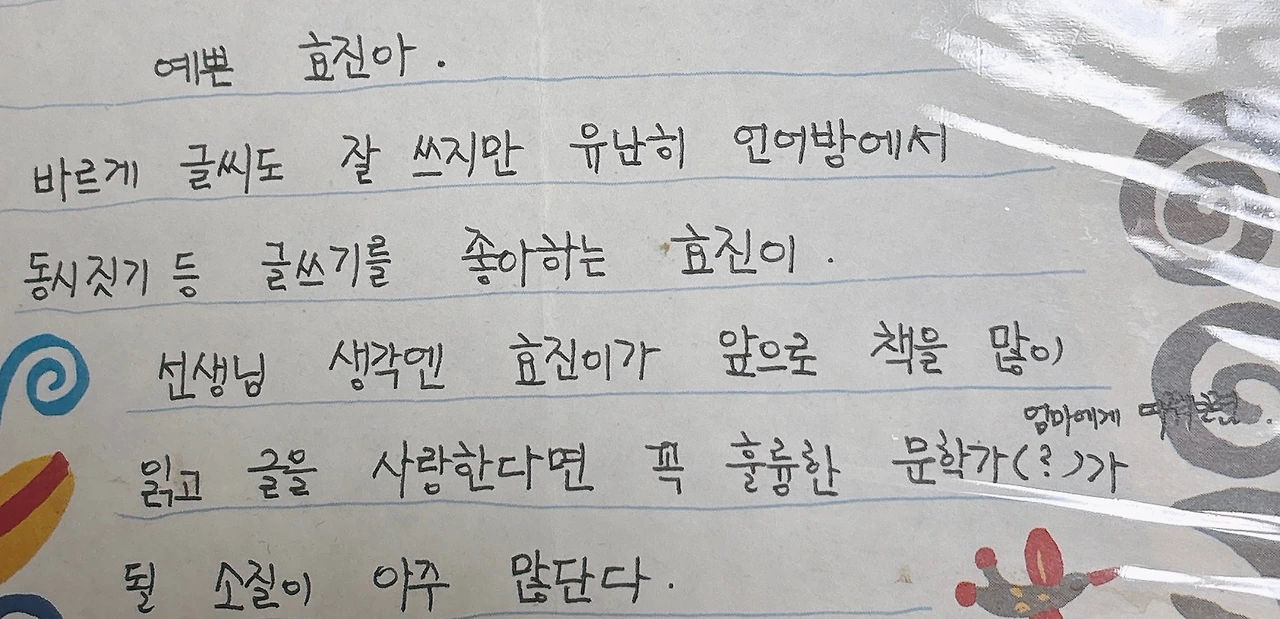 예쁜 효진아.
바르게 글씨도 잘 쓰지만 유난히 언어방에서
동시짓기 등 글쓰기를 좋아하는 효진이.
선생님 생각엔 효진이가 앞으로 책을 많이
엄마에게
읽고 글을 사랑한다면 꼭 훌륭한 문학가(?)가
될 소질이 아주 많단다.